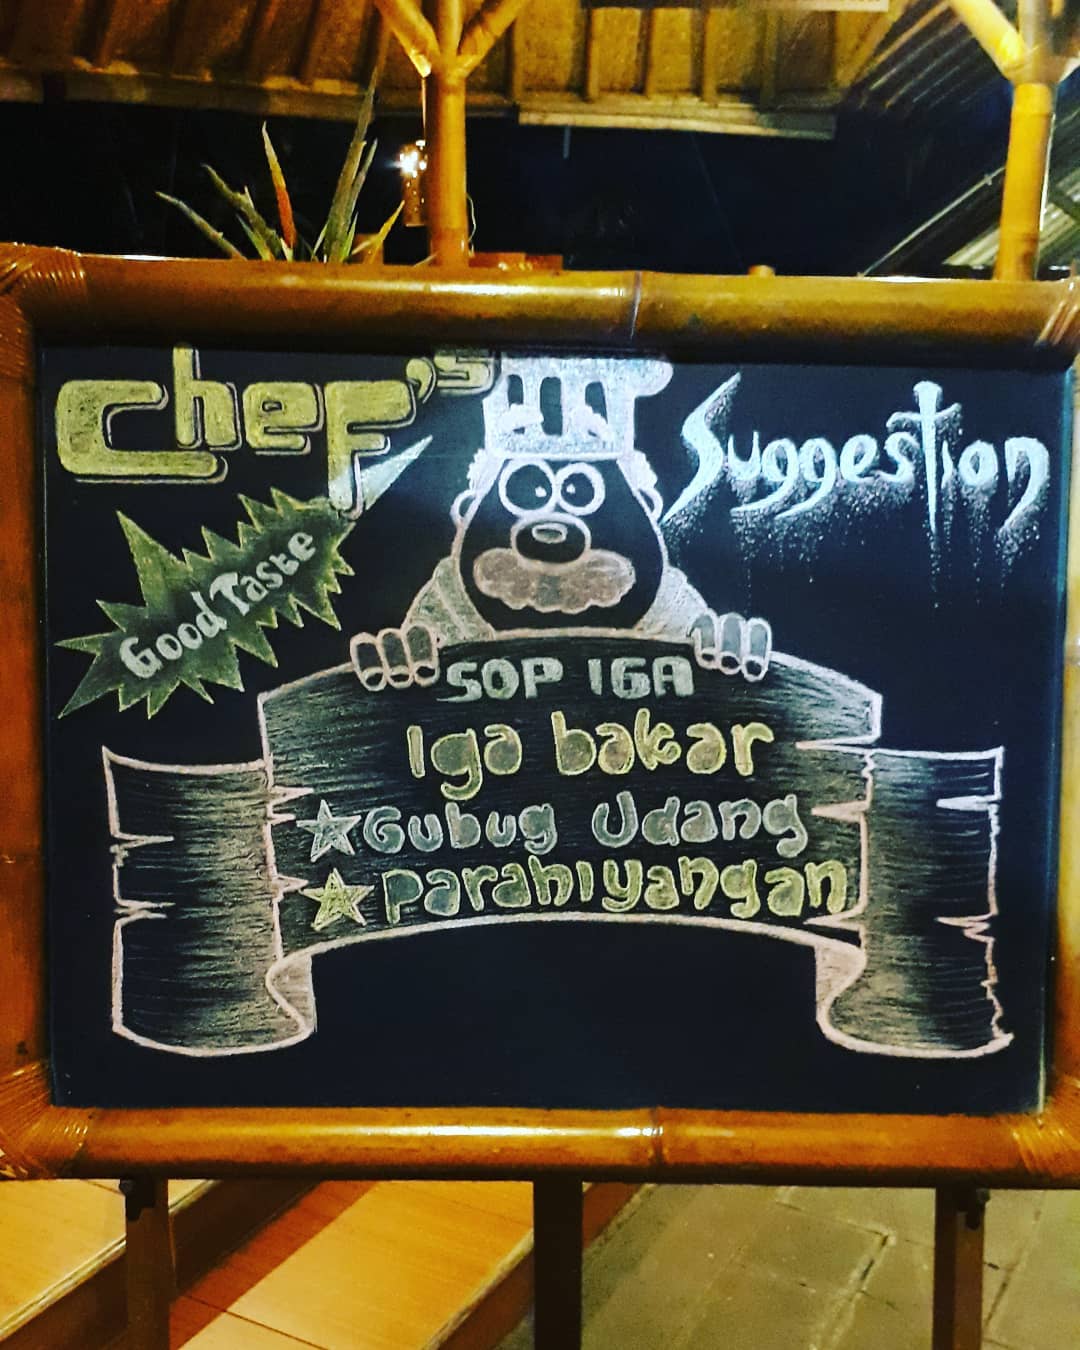 Chef's
Suggestion
Good Taste
SOP IGA
Iga bakar
Gubug Udang
Parahiyangan